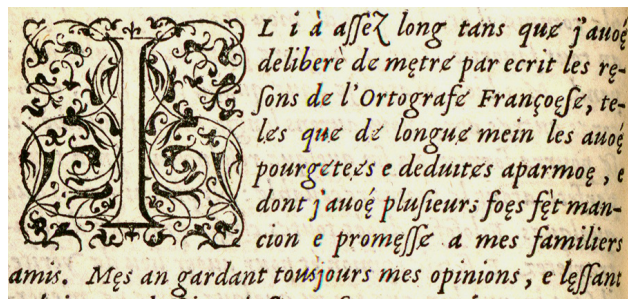 IL i à assez long tans que j'auoę́
deliberè de mętrɇ par ecrit les rę-
sons de l'Ortografɇ Françoęsɇ, te-
les quɇ de longuɇ mein les auoę́
pourgɇteɇs e deduitɇs aparmoę, e
dont j'auoę́ plusieurs foęs fęt man-
cion e promęssɇ a mes familiers
amis. Męs an gardant tousjours mes opinions, e lęssant